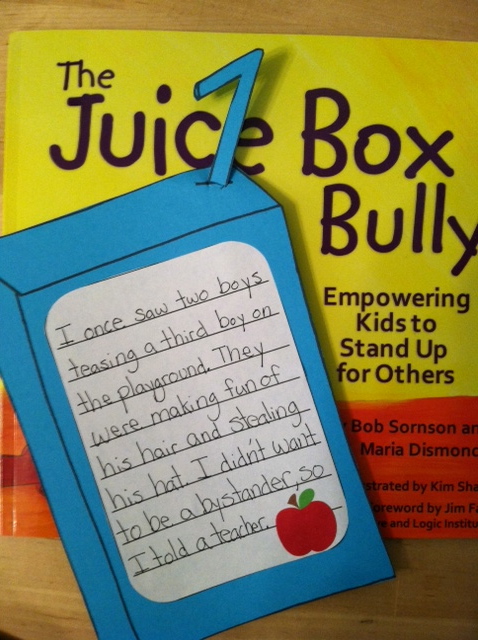 The
Juice Box
Bully
Empowering
Kids to
Stand Up
for Others
Bob Sornson
Maria
Kim
Foreword by Jim
and Logic
I once saw two boys
teasing a third boy on
the playground. They
were making fun of
his hair and stealing
his hat. I didn't want
to be a bystander, so
I told a teacher.